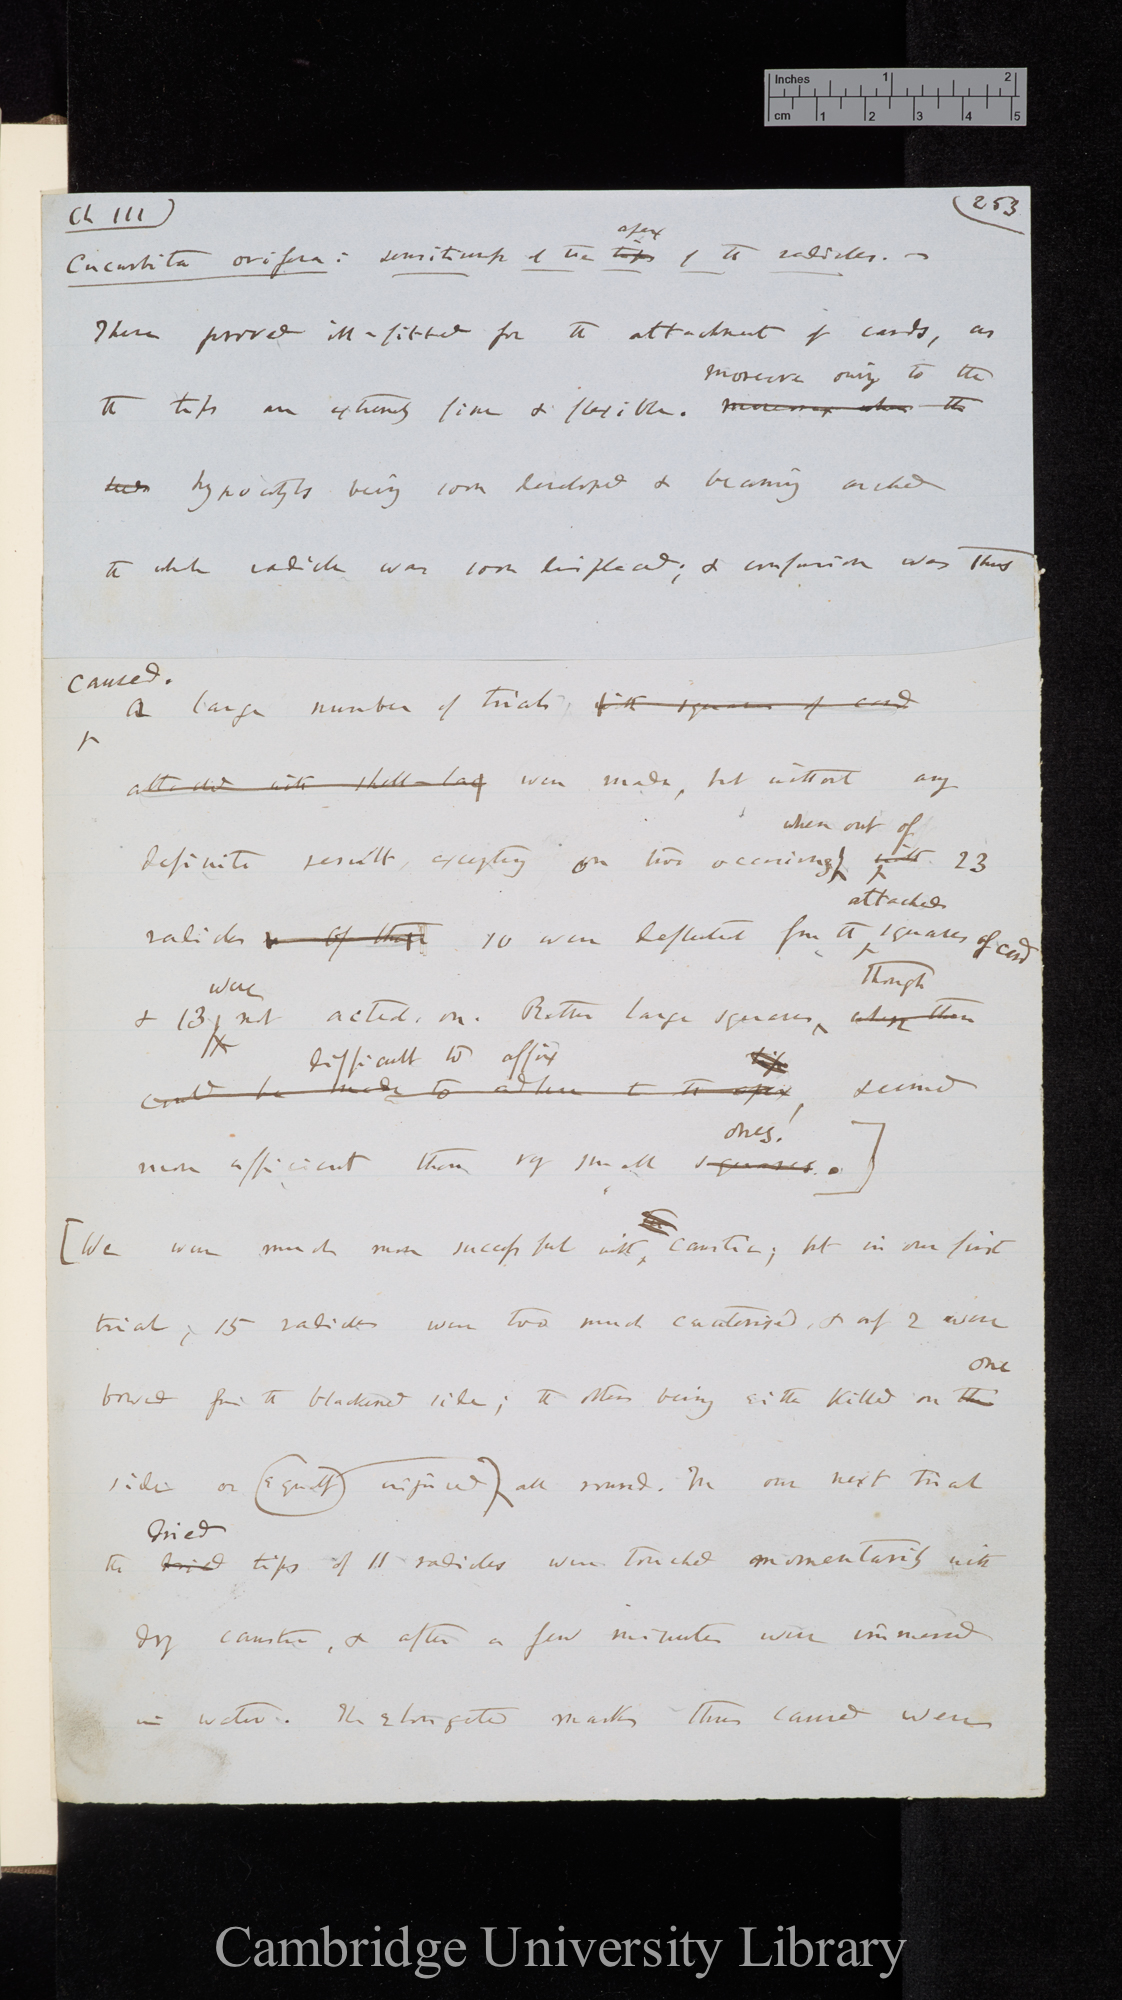 Inches 1 2
cm 1 2 3 4 5
Ch III)
253
apex
Cucurbita ovifera: sensitiveness of the tips of the radicles. —
These proved ill-fitted for the attachment of cards, as
moreover owing to the
the tips are extremely fine & flexible. Moreover when the
hypocotyls being soon developed & becoming arched
the whole radicle was soon displaced; & confusion was thus
caused.
A large number of trials, with squares of card
attached with shell-lac were made, but without any
when out of
definite result, excepting on two occasions, with 23
attached
radicles of these 10 were deflected from the squares of card
were though
& 13 not acted on. Rather large squares, when they
difficult to affix tip
could be made to adhere to the apex, seemed
ones!
more efficient than very small squares.]
the
[We were much more successful with caustic; but in our first
trial, 15 radicles were too much cauterised, & only 2 were
one
bowed from the blackened side; the others being either killed on the
side or (equally injured) all round. In our next trial
dried
the dried tips of 11 radicles were touched momentarily with
dry caustic, & after a few minutes were immersed
in water. The elongated marks thus caused were
Cambridge University Library